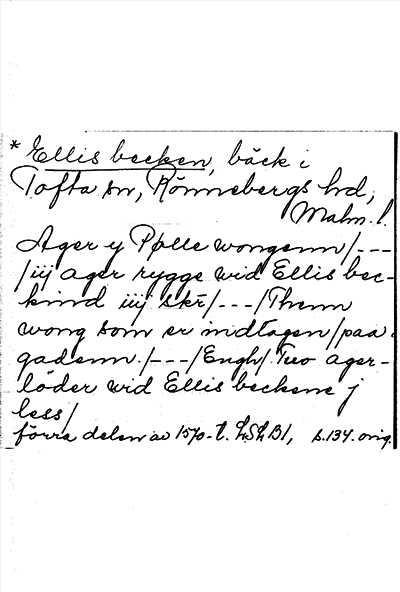 * Ellis becken, bäck i
Tofta sn, Rönnebergs hd,
Malm. l.
Ager y Pølle wongenn /---
/iij ager rygge wid Ellis bec-
kind iiij skr̄ /---/ Thenn
wong som er indtagen / paa
gadenn. /---/ Engh / Tuo ager-
löder wid Ellis beckene j
less /
förra delen av 1570-t. LSkB1, s. 134. orig.